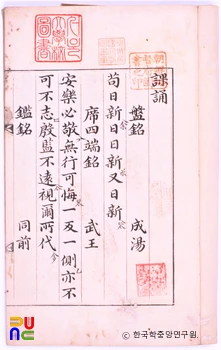 課誦
盤銘 成湯
苟日新日日新又日新
席四端銘 武王
安樂必敬無行可悔一反一側亦不
可不志殷監不遠視爾所代
鑑銘 同前
© 한국학중앙연구원.